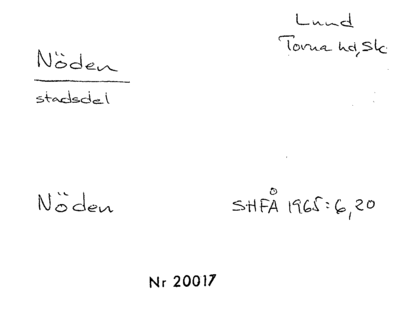 Lund
Torna hd, Sk
Nöden
stadsdel
Nöden
SHFÅ 1965:6, 20
Nr 20017